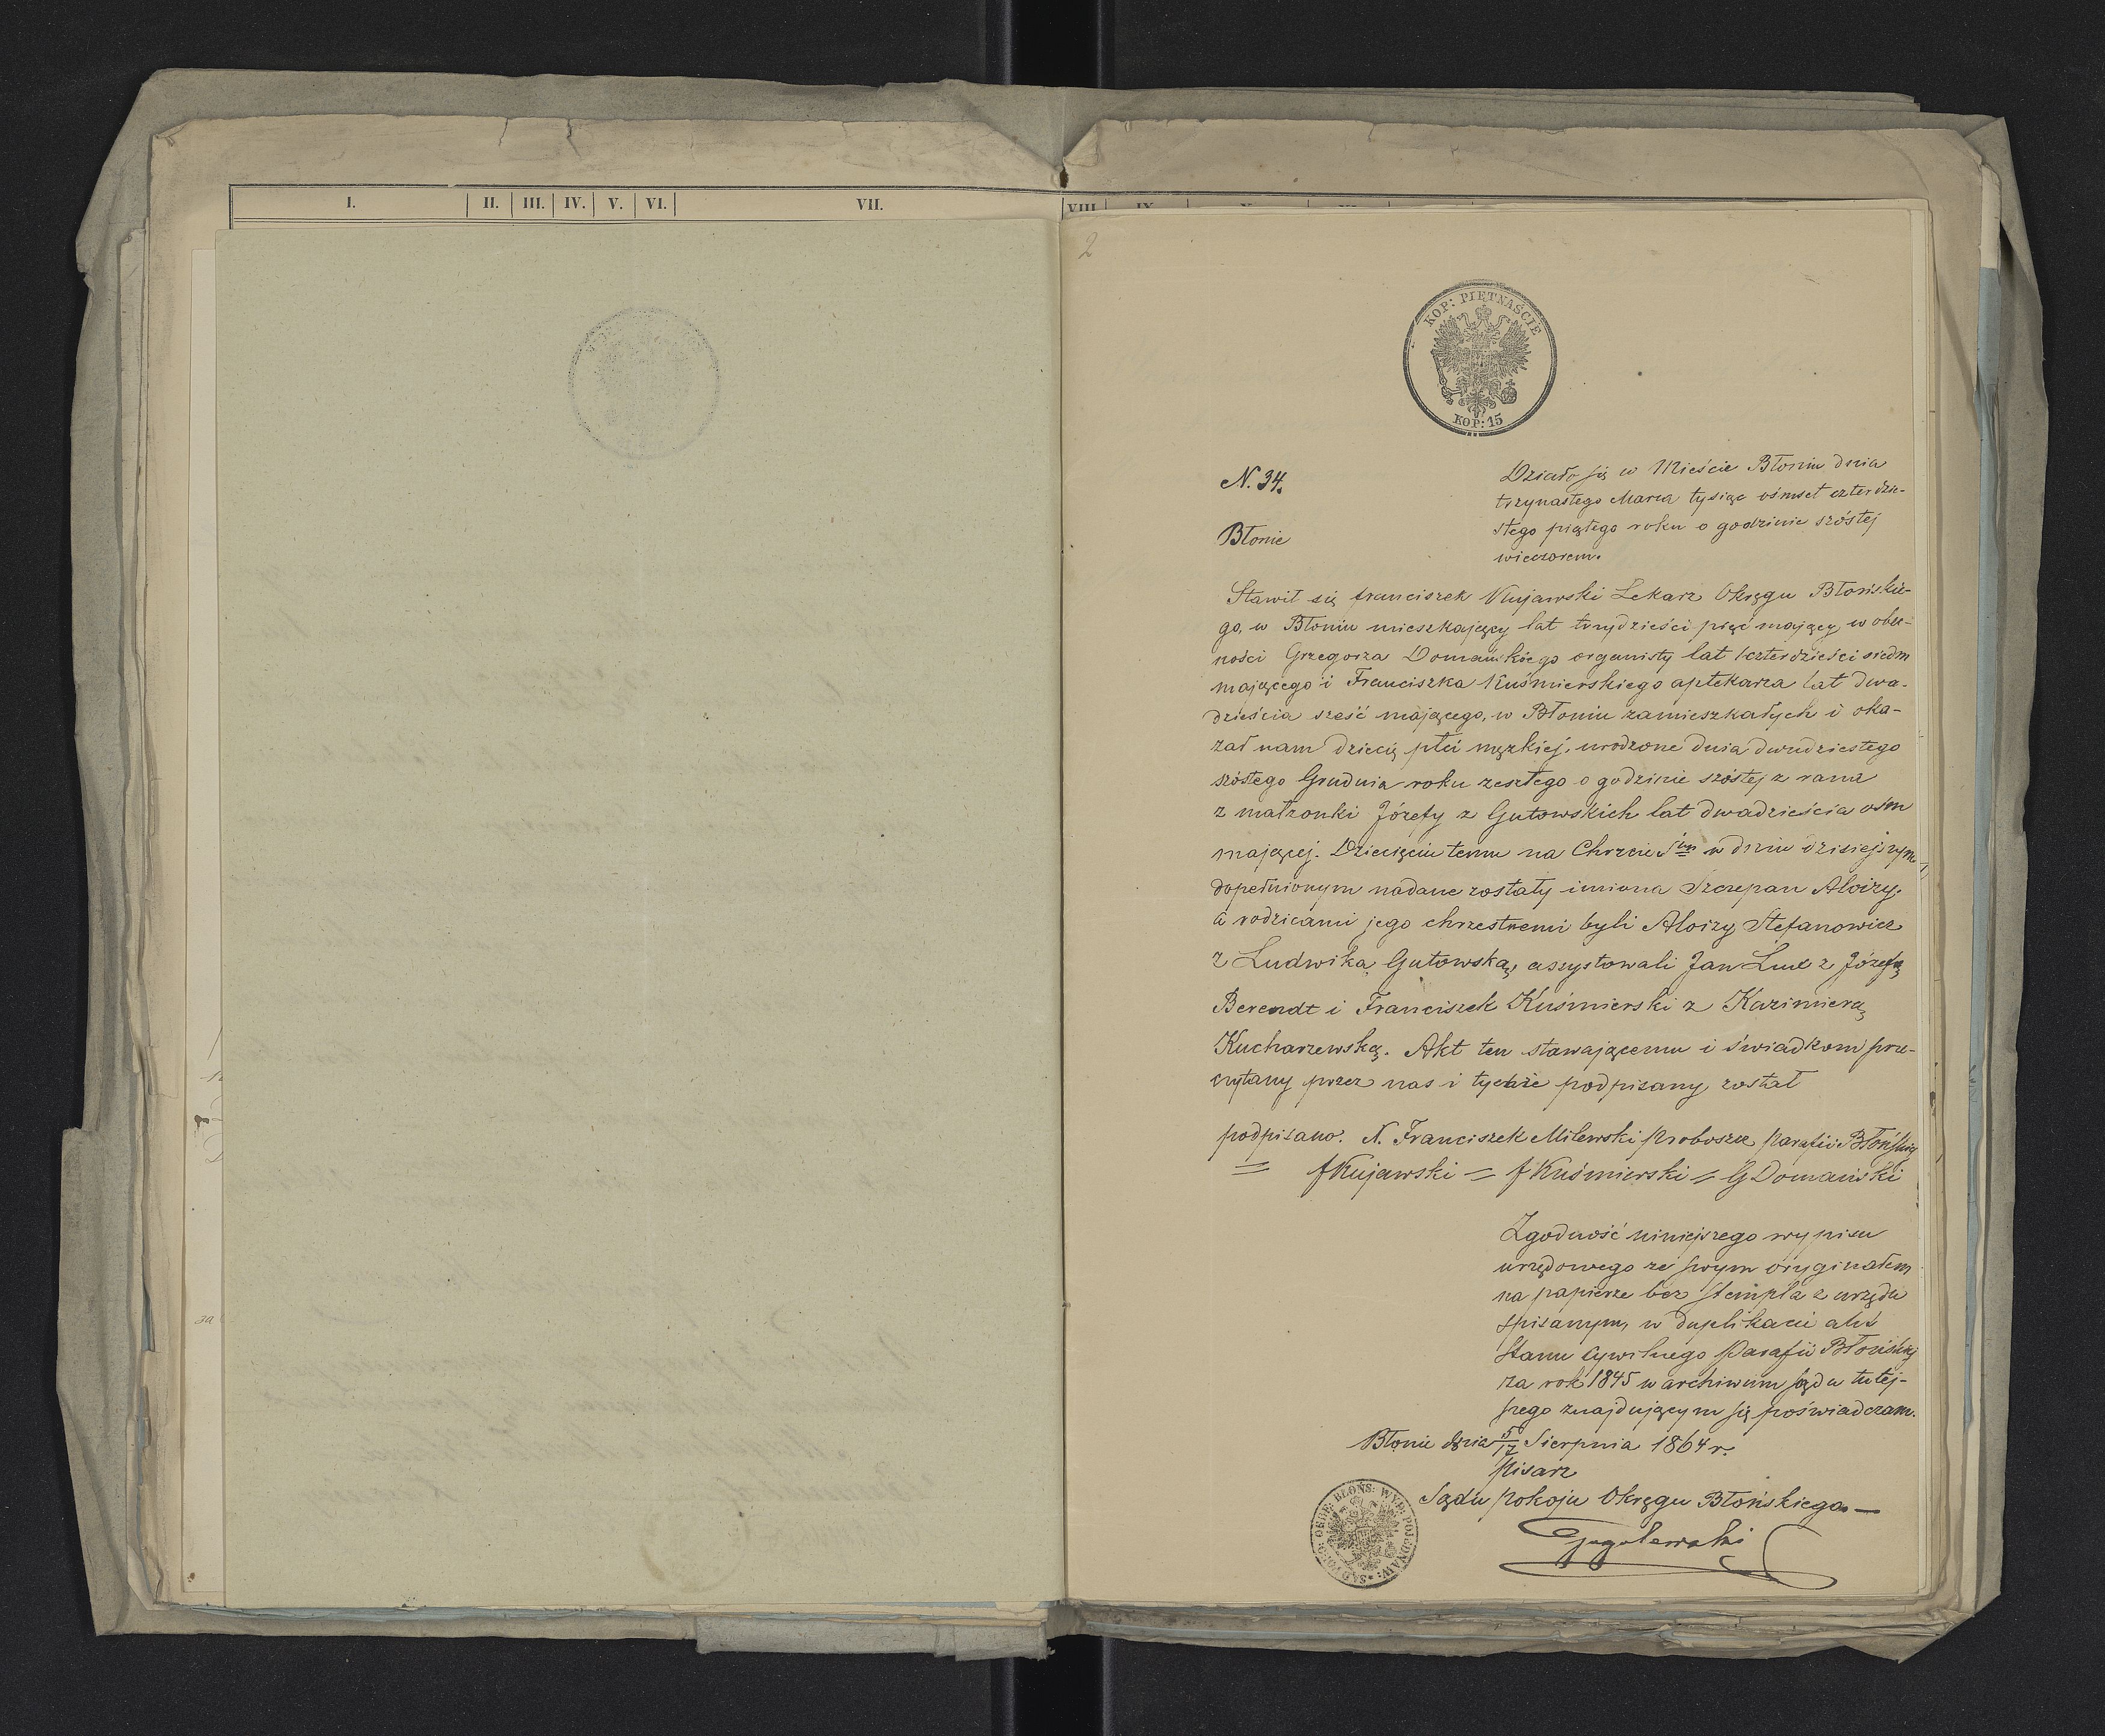 I. II. III. IV. V. VI. VII. VIII
2
KOP: PIĘTNAŚCIE
KOP: 15
N. 34.
Błonie
Działo się w Mieście Błoniu dnia
trzynastego Marca tysiąc ośmset czterdzie-
stego piątego roku o godzinie szóstej
wieczorem.
Stawił się franciszek Kujawski Lekarz Okręgu Błońskie-
go, w Błoniu mieszkający lat trzydzieści pięć mający, w obec-
ności Grzegorza Domańskiego organisty lat czterdzieści siedm
mającego i Franciszka Kuśmierskiego aptekarza lat dwa-
dzieścia sześć mającego, w Błoniu zamieszkałych i oka-
zał nam dziecię płci męzkiej, urodzone dnia dwudziestego
szóstego Grudnia roku zeszłego o godzinie szóstej z rana
z małżonki Józefy z Gutowskich lat dwadzieścia ośm
mającej. Dziecięciu temu na Chrzcie Stym w dniu dzisiejszym
dopełnionym nadane zostały imiona Szczepan Aloizy.
a rodzicami jego chrzestnemi byli Aloizy Stefanowicz
z Ludwiką Gutowską, assystowali Jan Lux z Józefą
Berendt i Franciszek Kuśmierski z Kazimierą
Kucharzewską. Akt ten stawającemu i świadkom prze-
czytany przez nas i tychże podpisany został
podpisano. X. Franciszek Milewski Proboszcz Parafii Błońskiej
= fKujawski = fKuśmierski = GDomański
Zgodność niniejszego wypisu
urzędowego ze swym oryginałem
na papierze bez stempla z urzędu
spisanym, w duplikacie akt
Stanu Cywilnego Parafii Błońskiej
za rok 1845 w archiwum sądu tutej-
szego znajdującym się poświadczam.
Błonie dnia 5/17 Sierpnia 1864 r.
Pisarz
Sądu Pokoju Okręgu Błońskiego —
Gogolewski